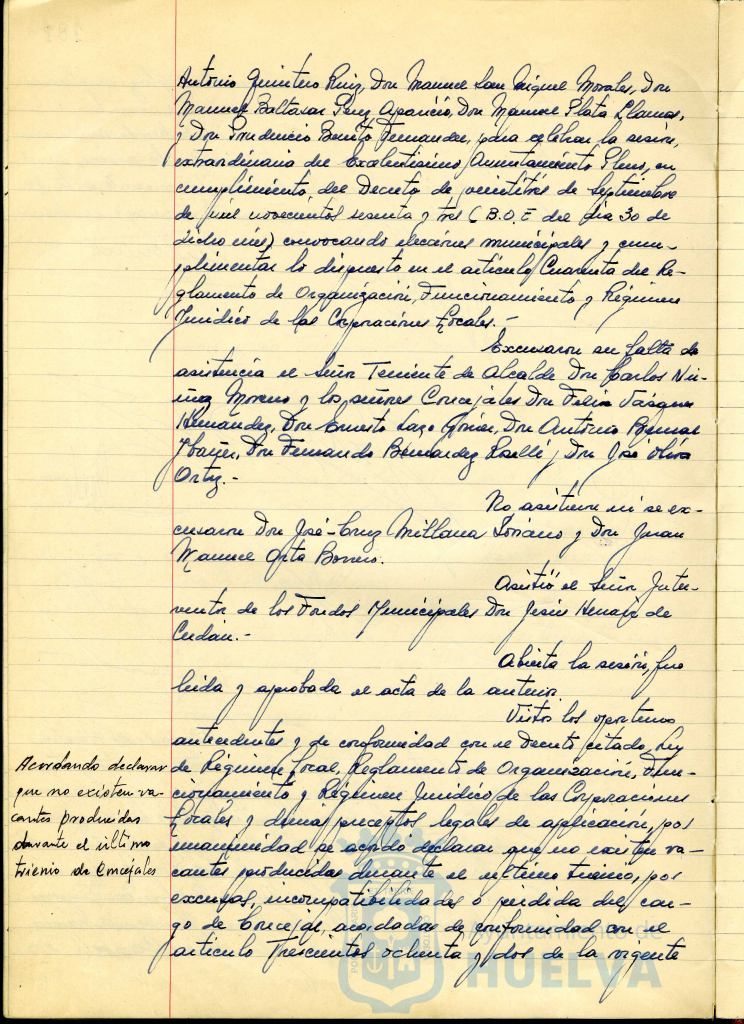 Antonio Quintero Ruiz, Don Manuel San Miguel Morales, Don
Manuel Baltasar Pérez Aparicio, Don Manuel Plata Llamas,
y Don Prudencio Benito Fernandez, para celebrar la sesión,
extraordinaria del Excelentísimo Ayuntamiento Pleno, en
cumplimiento del Decreto de veintitrés de Septiembre
de mil novecientos sesenta y tres (B.O.E del dia 30 de
dicho mes) convocando elecciones municipales y cum-
plimentar lo dispuesto en el artículo Cuarenta del Re-
glamento de Organización, Funcionamiento y Régimen
Jurídico de las Corporaciones Locales.-
Excusaron su falta de
asistencia el Señor Teniente de Alcalde Don Carlos Nú-
ñez Moreno y los señores Concejales Don Felix Vásquez
Hernández, Don Ernesto Lazo Don Antonio
Don Fernando Bermudez Roselló y Don José Oliva
Ortiz.-
No asistieron ni se ex-
cusaron Don José-Cruz Millana Soriano y Don Juan
Manuel Orta Borrero.
Asistió el Señor Inter-
ventor de los Fondos Municipales Don Jesús de
Abierta la sesión, fue
leida y aprobada el acta de la anterior.
Vistos los oportunos
antecedentes y de conformidad con el Decreto citado, Ley
de Régimen Local, Reglamento de Organización, Fun-
cionamiento y Régimen Jurídico de las Corporaciones
Locales y demás preceptos legales de aplicación, por
unanimidad se acordó declarar que no existen va-
cantes producidas durante el último trienio, por
excusas, incompatibilidades o pérdida del car-
go de Concejal, acordadas de conformidad con el
artículo Trescientos ochenta y dos de la vigente
Acordando declarar
que no existen va-
cantes producidas
durante el último
trienio de Concejales
Ayuntamiento de
HUELVA